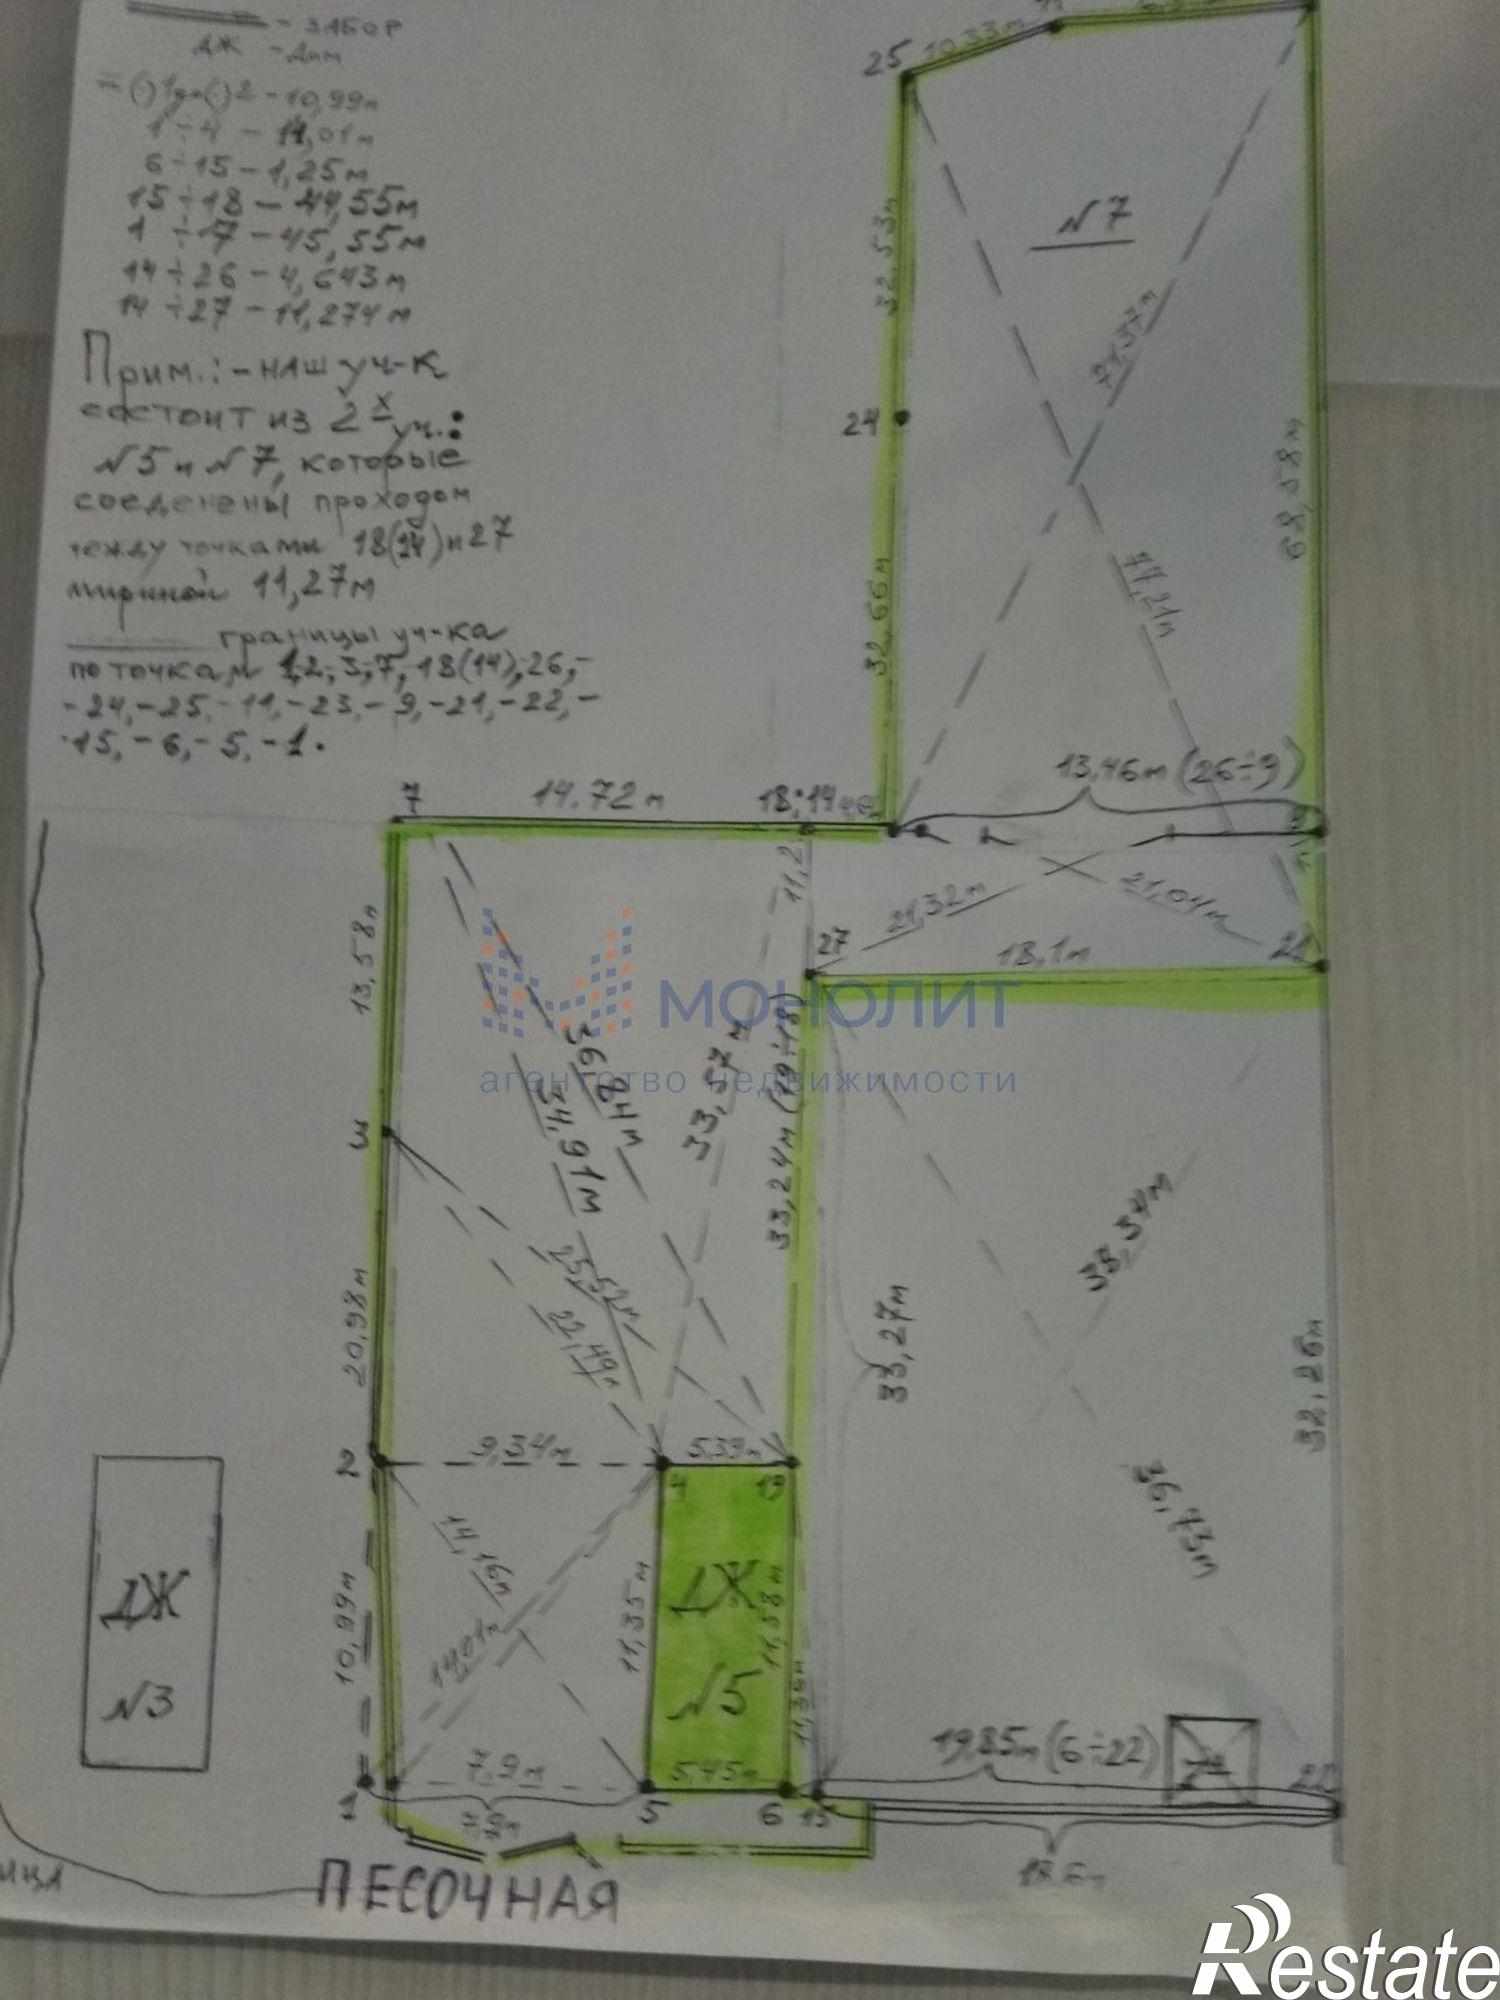 - ЗАБОР
ДЖ - Дом
= (·)1 до (·)2 - 10,99м
1 ÷ 4 - 14,01м
6 ÷ 15 - 1,25м
15 ÷ 18 - 44,55м
1 ÷ 7 - 45,55м
14 ÷ 26 - 4,643м
14 ÷ 27 - 11,274м
Прим.: - наш уч-к
состоит из 2х уч.:
N5 и N7, которые
соеденены проходом
между точками 18(14) и 27
шириной 11,27м
границы уч-ка
по точкам 1,2,-3,-7,-18(14),-26,-
-24,-25,-11,-23,-9,-21,-22,-
-15,-6,-5,-1.
25
10,33м
N7
32,53м
77,37м
24
68,58м
77,21м
32,66м
13,46м (26÷9)
7
14,72м
18;14
11,2
21,32м
21,04м
27
18,1м
21
13,58м
МОНОЛИТ
агентство недвижимости
36,84м
34,91м
33,57м
33,24м (19÷18)
3
25,52м
22,49м
20,98м
33,27м
38,34м
32,26м
36,73м
2
9,34м
5,39м
4
19
14,16м
14,01м
10,99м
11,35м
11,58м
11,34м
ДЖ
N5
ДЖ
N3
19,85м (6÷22)
22
1
7,9м
5,45м
5
6
15
7,9м
18,6м
ПЕСОЧНАЯ
Restate